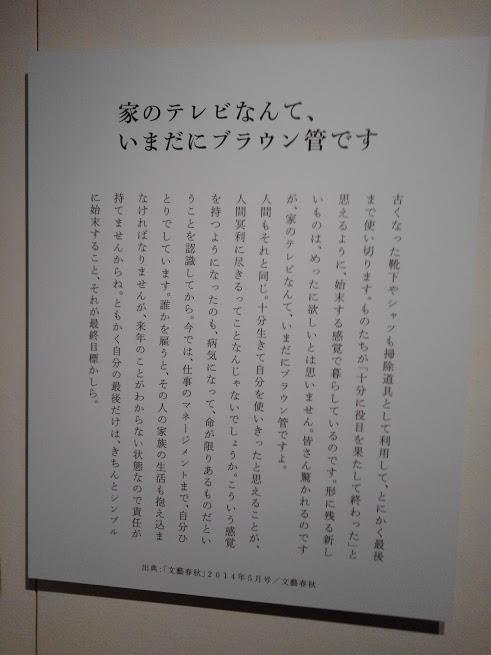 家のテレビなんて、
いまだにブラウン管です
古くなった靴下やシャツも掃除道具として利用して、とにかく最後
まで使い切ります。ものたちが「十分に役目を果たして終わった」と
思えるように、始末する感覚で暮らしているのです。形に残る新し
いものは、めったに欲しいとは思いません。皆さん驚かれるのです
が、家のテレビなんて、いまだにブラウン管ですよ。
人間もそれと同じ。十分生きて自分を使いきったと思えることが、
人間冥利に尽きるってことなんじゃないでしょうか。こういう感覚
を持つようになったのも、病気になって、命が限りあるものだとい
うことを認識してから。今では、仕事のマネージメントまで、自分ひ
とりでしています。誰かを雇うと、その人の家族の生活も抱え込ま
なければなりませんが、来年のことがわからない状態なので責任が
持てませんからね。ともかく自分の最後だけは、きちんとシンプル
に始末すること、それが最終目標かしら。
出典:「文藝春秋」2014年5月号/文藝春秋